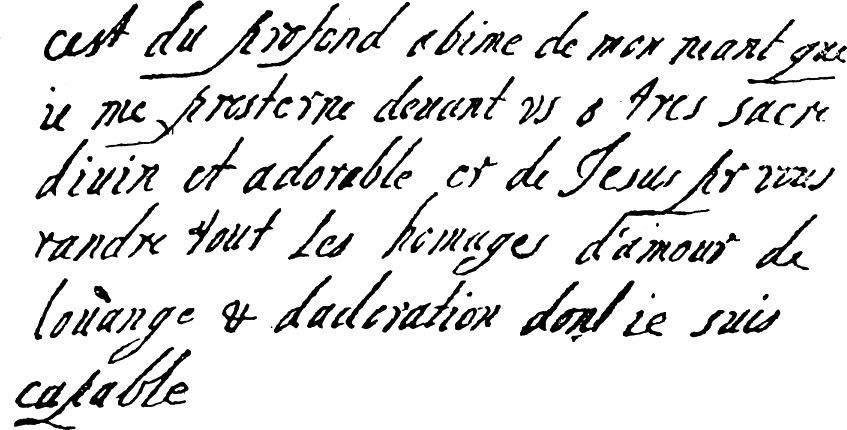 cest du profond abime de mon neant que
ie me prosterne deuant vs o tres sacre
diuin et adorable cr de Jesus pr vous
randre tout les homages d'amour de
louange & dadoration dont ie suis
capable